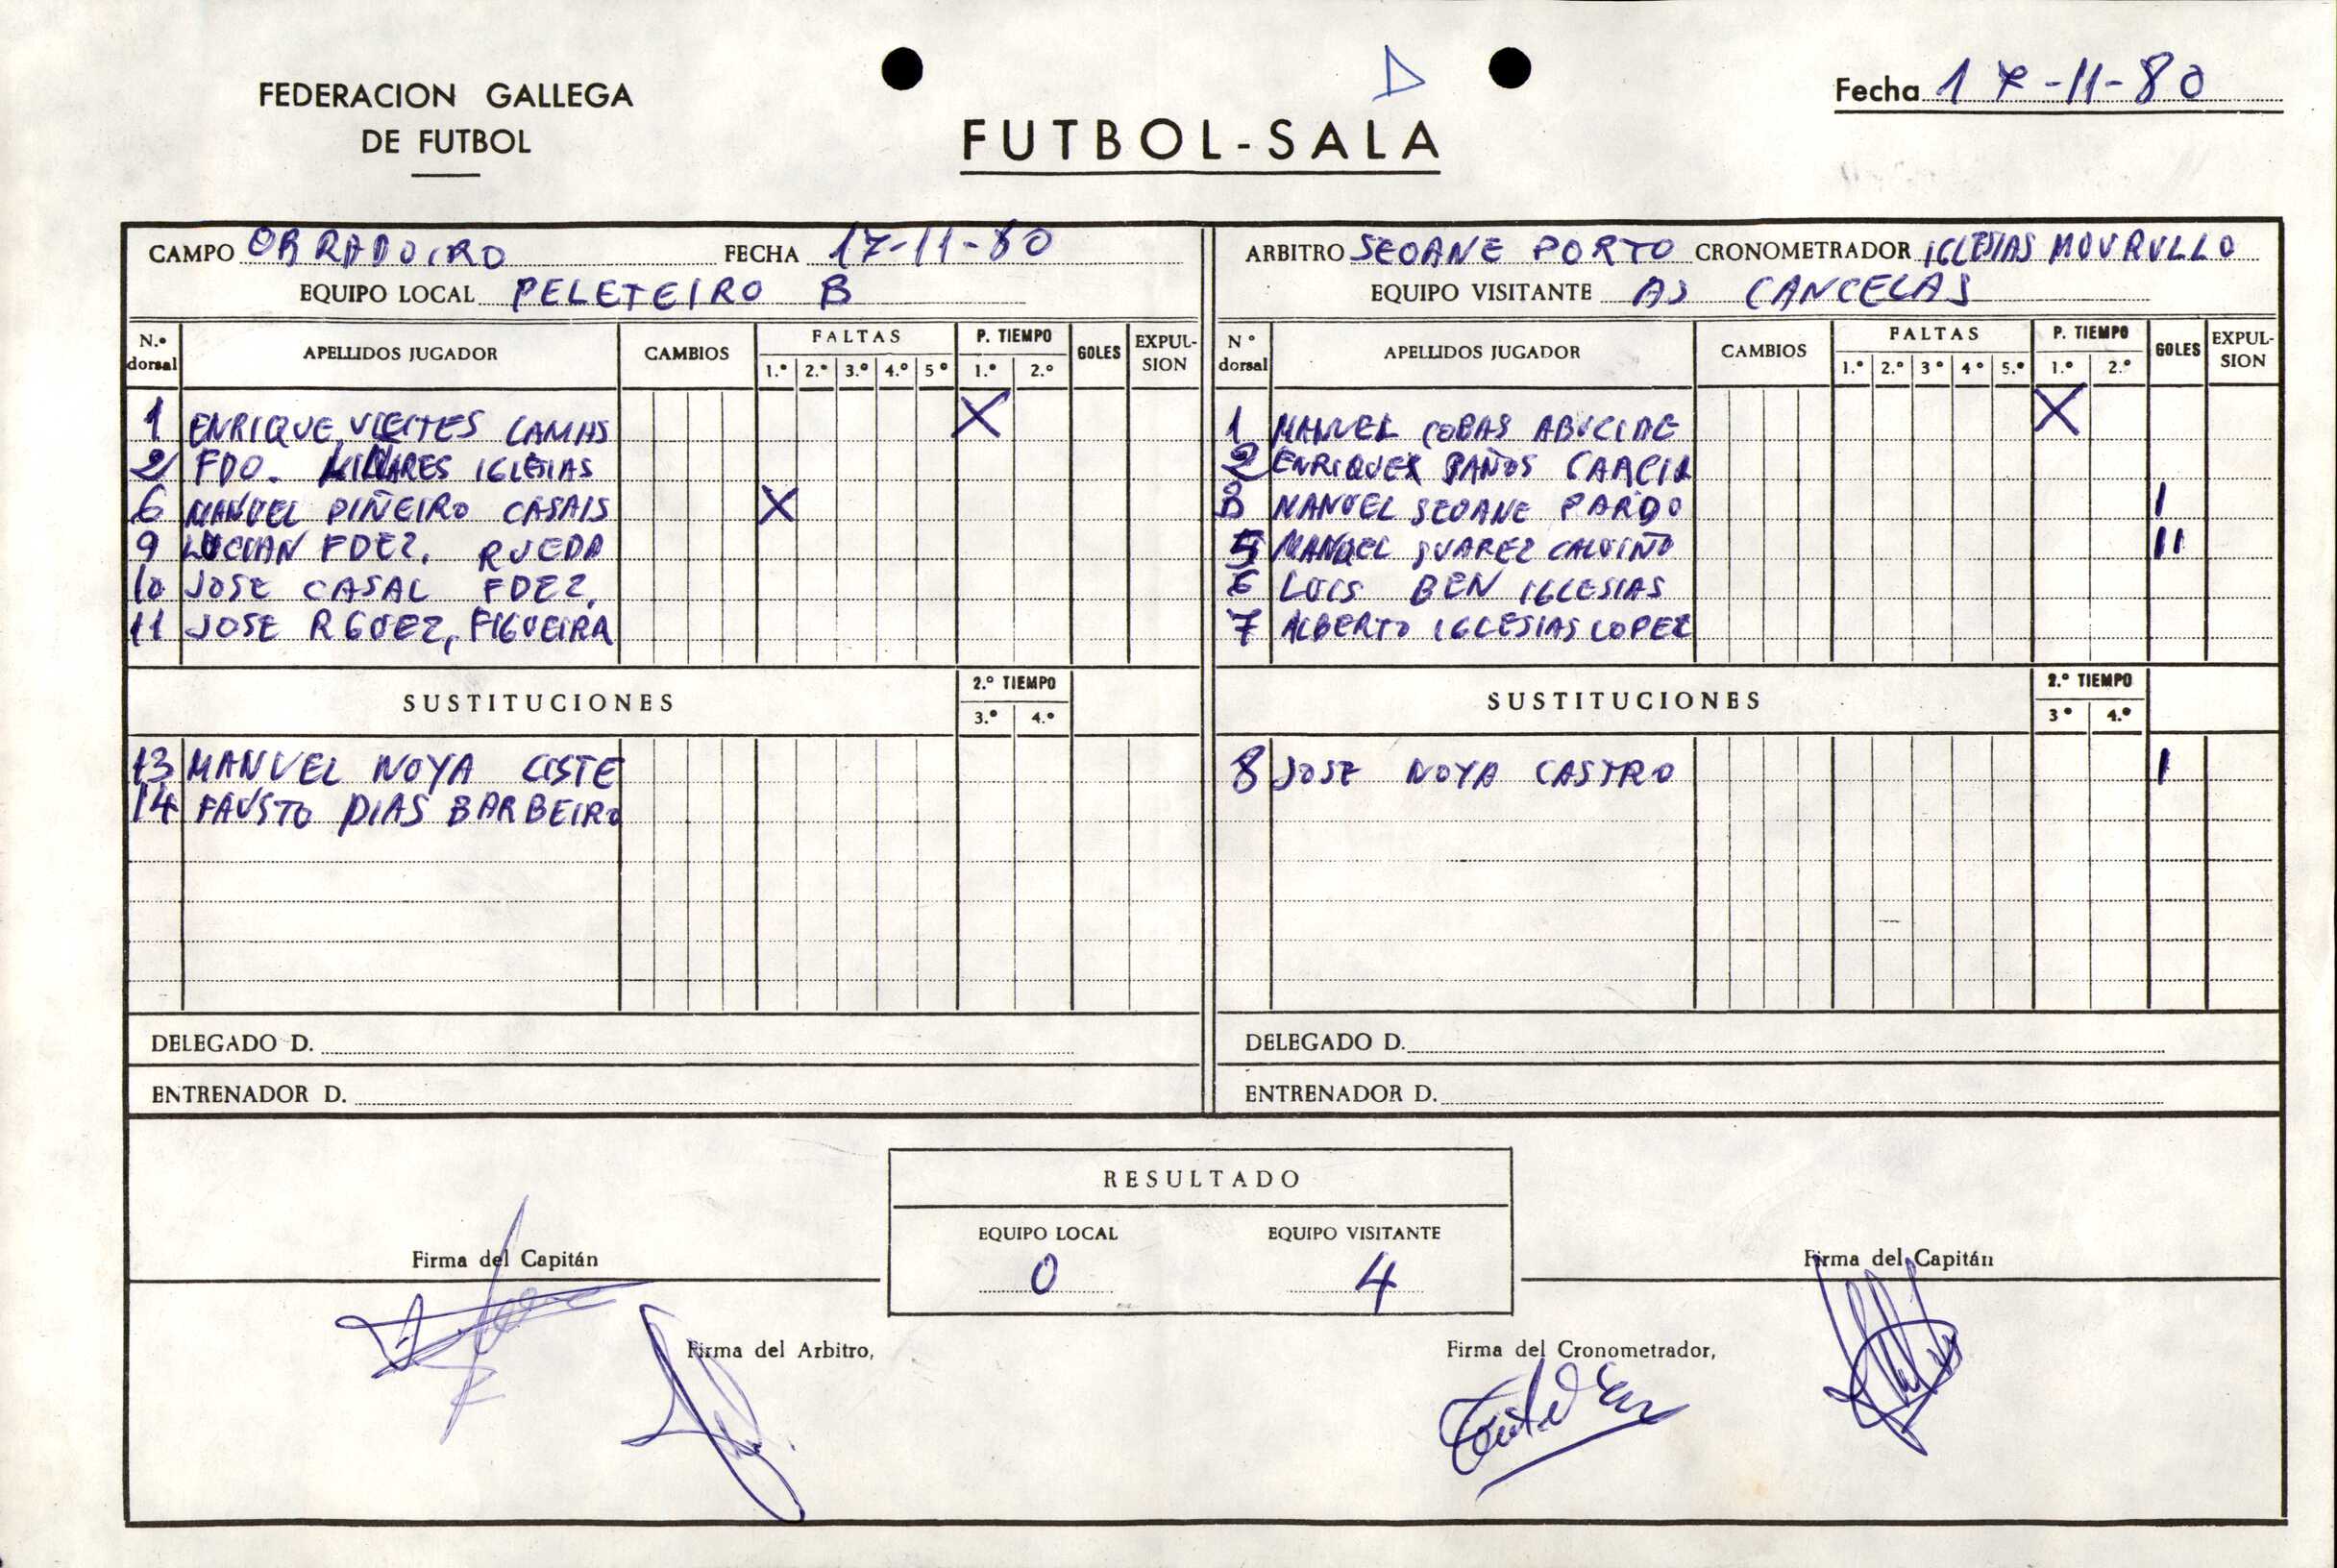 FEDERACION GALLEGA
DE FUTBOL
D
FUTBOL-SALA
Fecha 17-11-80
CAMPO OBRADOIRO FECHA 17-11-80
EQUIPO LOCAL PELETEIRO B
N.º dorsal APELLIDOS JUGADOR CAMBIOS FALTAS 1.º 2.º 3.º 4.º 5º P. TIEMPO 1.º 2.º GOLES EXPULSION
1 ENRIQUE VIEITES CAMAS X
2 FDO. MILLARES IGLESIAS
6 MANUEL PIÑEIRO CASAIS X
9 LUCIAN FDEZ. RUEDA
10 JOSE CASAL FDEZ.
11 JOSE RGUEZ, FIGUEIRA
SUSTITUCIONES 2.º TIEMPO 3.º 4.º
13 MANUEL NOYA CISTE
14 FAUSTO DIAS BARBEIRO
DELEGADO D.
ENTRENADOR D.
ARBITRO SEOANE PORTO CRONOMETRADOR IGLESIAS MOURULLO
EQUIPO VISITANTE AS CANCELAS
Nº dorsal APELLIDOS JUGADOR CAMBIOS FALTAS 1.º 2.º 3º 4º 5.º P. TIEMPO 1.º 2.º GOLES EXPULSION
1 MANUEL COBAS X
2 ENRIQUE BAÑOS
3 MANUEL SEOANE PARDO I
5 MANUEL SUAREZ CALVIÑO II
6 LUIS BEN IGLESIAS
7 ALBERTO IGLESIAS LOPEZ
SUSTITUCIONES 2.º TIEMPO 3º 4.º
8 JOSE NOYA CASTRO I
DELEGADO D.
ENTRENADOR D.
RESULTADO
EQUIPO LOCAL EQUIPO VISITANTE
0 4
Firma del Capitán
Firma del Capitán
Firma del Arbitro,
Firma del Cronometrador,